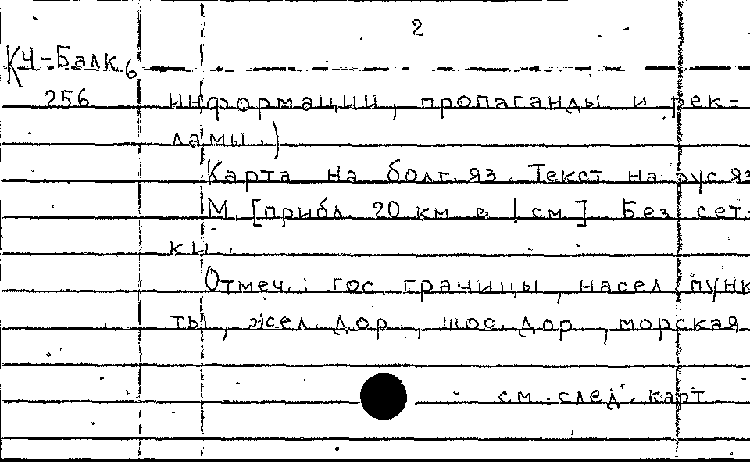 2
К4-Балк6
256
информации, пропаганды и рек-
ламы.)
Карта на болг. яз. Текст на рус. яз
М [прибл. 20 км в 1 см]. Без сет-
ки.
Отмеч.: гос. границы, насел. пунк
ты, жел. дор., шос. дор., морская
см. след. карт